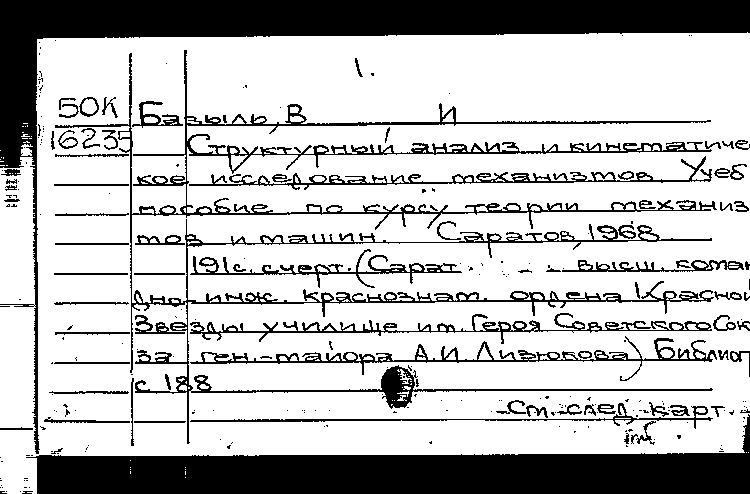 1.
50К Базыль, В И
16235 Структурный анализ и кинематичес
кое исследование механизмов Учеб
пособие по курсу теории механиз
мов и машин. Саратов, 1968
191с. с черт. (Сарат. высш. коман
дно-инж. краснознам. ордена Красной
Звезды училище им. Героя Советского Сою
за ген.-майора А.И. Лизюкова) Библиогр
с 188
См. след. карт.